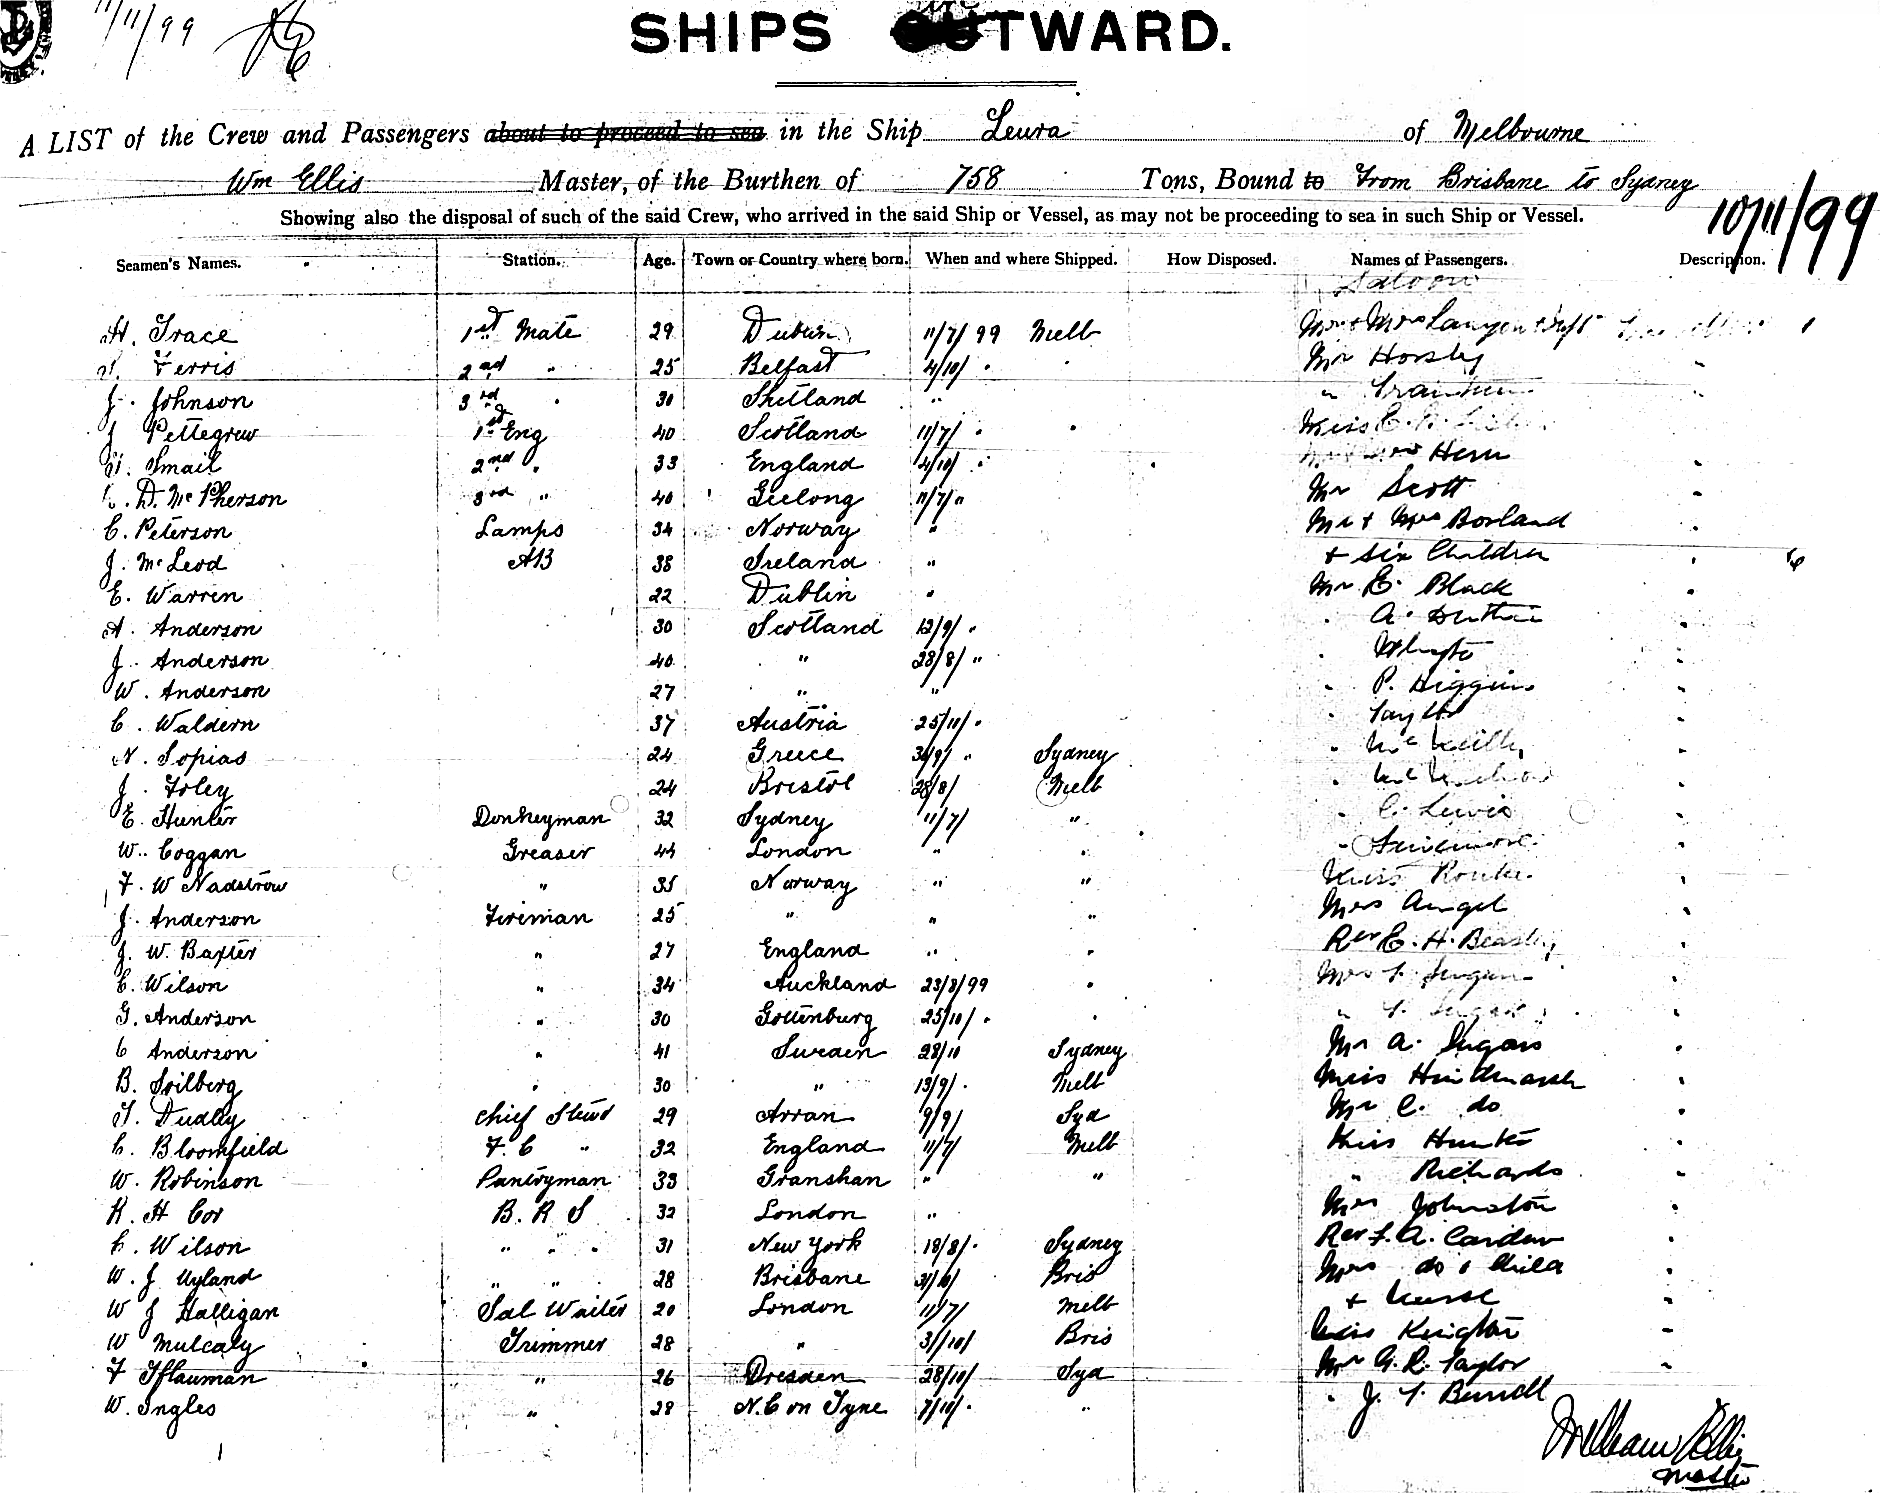 11/11/99
SHIPS OUTWARD.
A LIST of the Crew and Passengers about to proceed to sea in the Ship Leura of Melbourne
Wm Ellis Master, of the Burthen of 758 Tons, Bound to From Brisbane to Sydney
10/11/99
Showing also the disposal of such of the said Crew, who arrived in the said Ship or Vessel, as may not be proceeding to sea in such Ship or Vessel.
Seamen's Names. Station. Age. Town or Country where born. When and where Shipped. How Disposed. Names of Passengers. Description.
Saloon
H. Grace 1st Mate 29 Dublin 11/7/99 Melb Mr + Mrs
Ferris 2nd " 25 Belfast 4/10/ " Mr Horsley
J. Johnson 3rd " 30 Shetland "
J Pettegrew 1st Eng 40 Scotland 11/7/ " Miss E.
Smail 2nd " 33 England 4/10/ " Hern
D. McPherson 3rd " 40 Geelong 11/7/ " Mr Scott
C. Peterson Lamps 34 Norway " Mr + Mrs Borland
J. McLeod AB 38 Ireland " + six Children
E. Warren 22 Dublin " Mr E. Black
A. Anderson 30 Scotland 12/9/ " " A.
J. Anderson 40 " 28/8/ " "
W. Anderson 27 " " " P. Higgins
C. Waldern 37 Austria 25/11/ " "
N. Sopias 24 Greece 30/9/ " Sydney "
J. Foley 24 Bristol 28/8/ Melb "
E. Hunter Donkeyman 32 Sydney 11/7/ " " C. Lewis
W. Coggan Greaser 44 London " " "
F. W Nadstrow " 35 Norway " " Miss Rourke
J. Anderson Fireman 25 " " " Mrs Angel
J. W. Baxter " 27 England " " Rev E. H. Beasley
C. Wilson " 34 Auckland 23/8/99 " Mrs
G. Anderson " 30 Gottenburg 25/10/ " " "
C Anderson " 41 Sweden 28/10 Sydney Mr A.
B. Soilberg " 30 " 13/9/ " Melb Miss Hindmarsh
T. Dudley Chief Stewd 29 Arran 9/9/ Syd Mr C. do
C. Bloomfield F. C " 32 England 11/7/ Melb Miss Hunter
W. Robinson Pantryman 33 Granshan " " " Richards
R. H Cox B. R S 32 London " Mrs Johnston
C. Wilson " " " 31 New York 18/8/ " Sydney Rev F. A. Carden
W. J Uyland " " 28 Brisbane 31/10/ Bris Mrs do + Child
W J Halligan Sal Waiter 20 London 11/7/ Melb + Nurse
W Mulcaly Trimmer 28 " 31/10/ Bris Miss Knighton
F Pflauman " 26 Dresden 28/10/ Syd Mr G. R. Taylor
W. Ingles " 28 N.C on Tyne 7/10/ " " " J. T. Burrell
William Ellis
Master